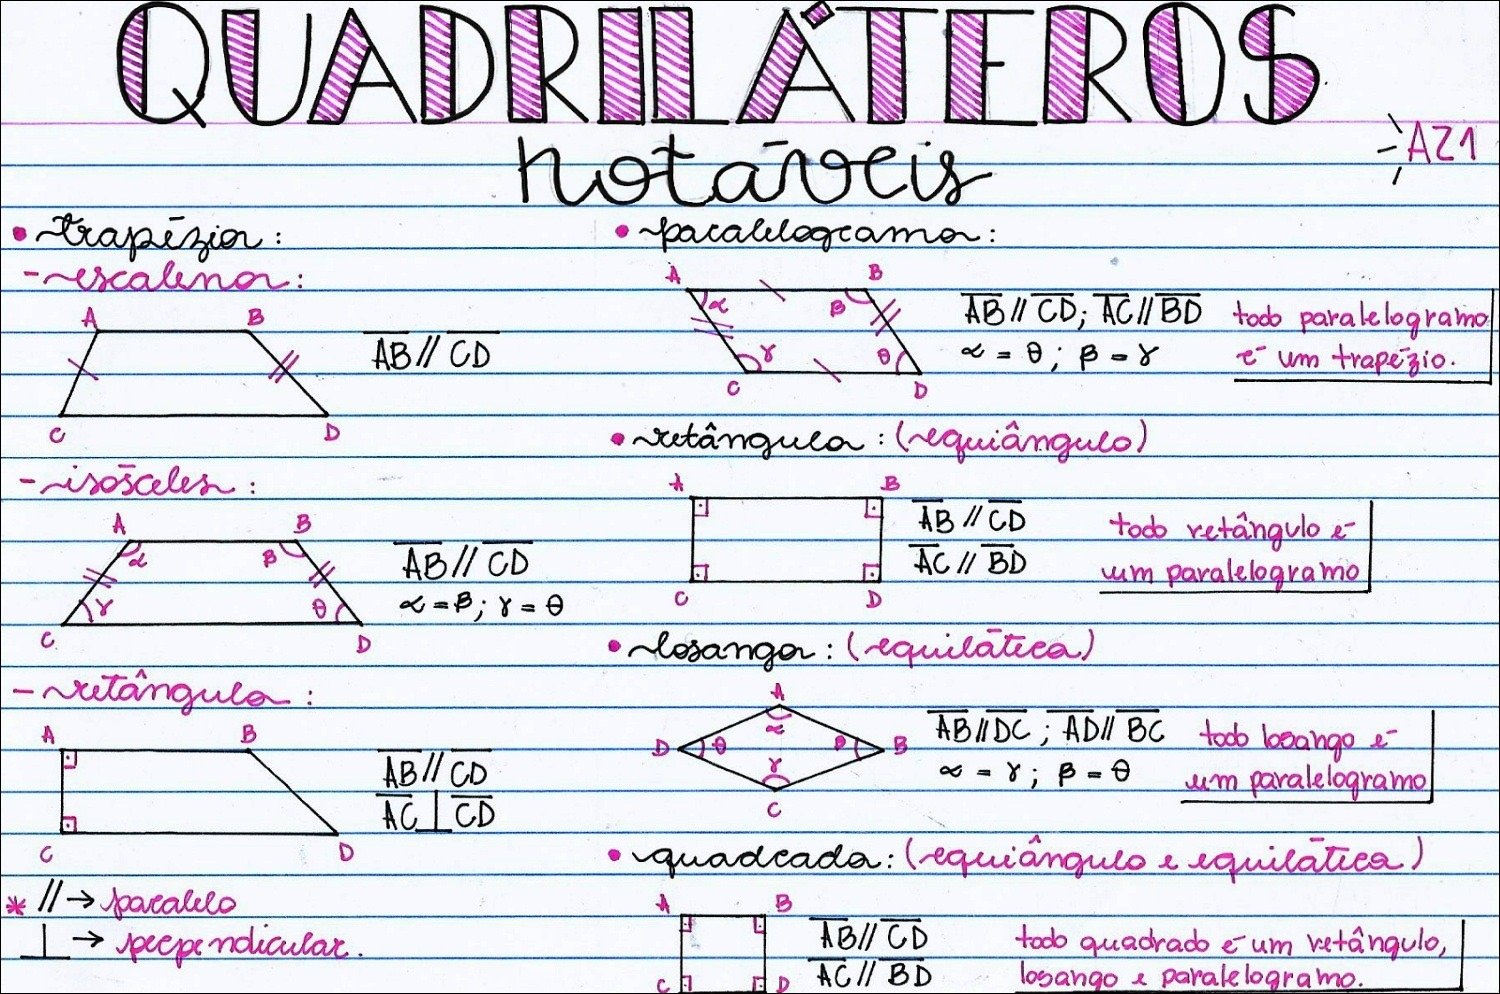 QUADRILÁTEROS
notáveis
AZ1
• trapézio:
- escaleno:
A B
C D
AB // CD
- isósceles:
A B
α β
γ θ
C D
AB // CD
α = β; γ = θ
- retângulo:
A B
C D
AB // CD
AC ⊥ CD
* // → paralelo
⊥ → perpendicular.
• paralelogramo:
A B
α β
γ θ
C D
AB // CD; AC // BD
α = θ; β = γ
todo paralelogramo
é um trapézio.
• retângulo: (equiângulo)
A B
C D
AB // CD
AC // BD
todo retângulo é
um paralelogramo
• losango: (equilátero)
A
α
D θ β B
γ
C
AB // DC; AD // BC
α = γ; β = θ
todo losango é
um paralelogramo
• quadrado: (equiângulo e equilátero)
A B
C D
AB // CD
AC // BD
todo quadrado é um retângulo,
losango e paralelogramo.